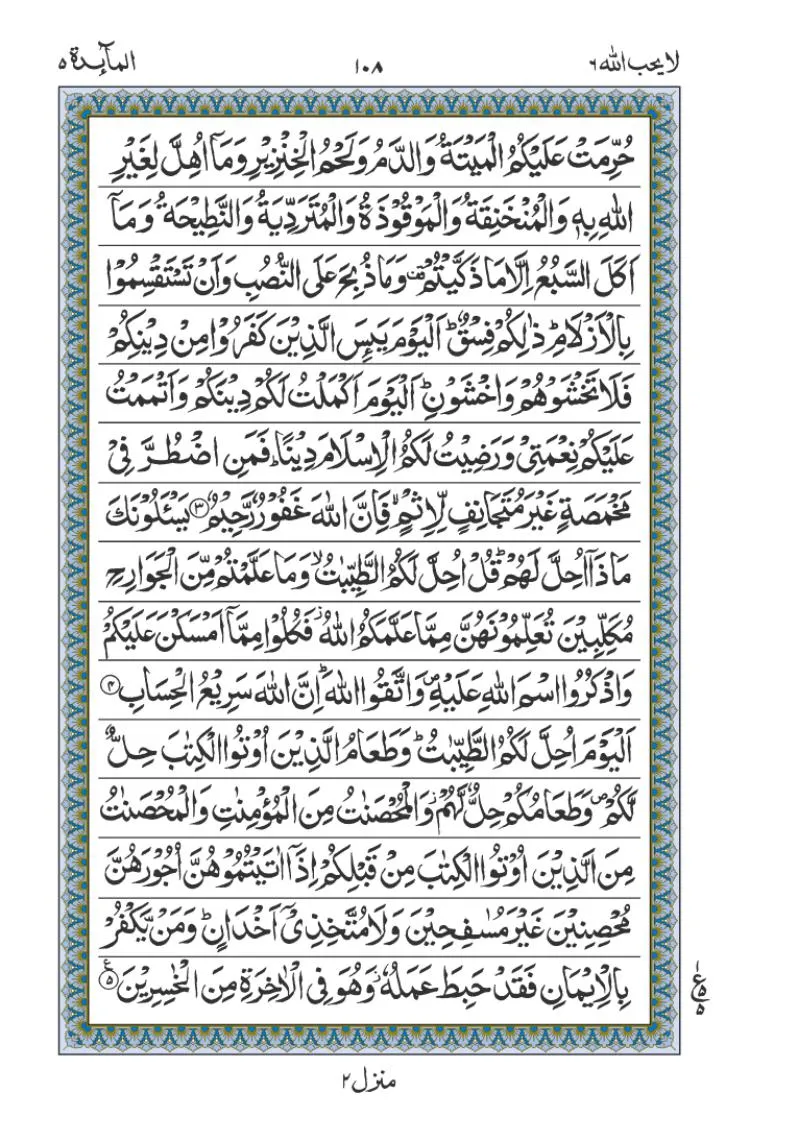 لا یحب الله ٦
١٠٨
المآئدة ٥
حُرِّمَتْ عَلَيْكُمُ الْمَيْتَةُ وَالدَّمُ وَلَحْمُ الْخِنْزِيْرِ وَمَآ اُهِلَّ لِغَيْرِ
اللّٰهِ بِهٖ وَالْمُنْخَنِقَةُ وَالْمَوْقُوْذَةُ وَالْمُتَرَدِّيَةُ وَالنَّطِيْحَةُ وَمَآ
اَكَلَ السَّبُعُ اِلَّا مَا ذَكَّيْتُمْ ۫ وَمَا ذُبِحَ عَلَى النُّصُبِ وَاَنْ تَسْتَقْسِمُوْا
بِالْاَزْلَامِ ؕ ذٰلِكُمْ فِسْقٌ ؕ اَلْيَوْمَ يَىِٕسَ الَّذِيْنَ كَفَرُوْا مِنْ دِيْنِكُمْ
فَلَا تَخْشَوْهُمْ وَاخْشَوْنِ ؕ اَلْيَوْمَ اَكْمَلْتُ لَكُمْ دِيْنَكُمْ وَاَتْمَمْتُ
عَلَيْكُمْ نِعْمَتِيْ وَرَضِيْتُ لَكُمُ الْاِسْلَامَ دِيْنًا ؕ فَمَنِ اضْطُرَّ فِيْ
مَخْمَصَةٍ غَيْرَ مُتَجَانِفٍ لِّاِثْمٍ ۙ فَاِنَّ اللّٰهَ غَفُوْرٌ رَّحِيْمٌ ۝٣ يَسْـَٔلُوْنَكَ
مَاذَآ اُحِلَّ لَهُمْ ؕ قُلْ اُحِلَّ لَكُمُ الطَّيِّبٰتُ ۙ وَمَا عَلَّمْتُمْ مِّنَ الْجَوَارِحِ
مُكَلِّبِيْنَ تُعَلِّمُوْنَهُنَّ مِمَّا عَلَّمَكُمُ اللّٰهُ ؗ فَكُلُوْا مِمَّآ اَمْسَكْنَ عَلَيْكُمْ
وَاذْكُرُوا اسْمَ اللّٰهِ عَلَيْهِ ۪ وَاتَّقُوا اللّٰهَ ؕ اِنَّ اللّٰهَ سَرِيْعُ الْحِسَابِ ۝٤
اَلْيَوْمَ اُحِلَّ لَكُمُ الطَّيِّبٰتُ ؕ وَطَعَامُ الَّذِيْنَ اُوْتُوا الْكِتٰبَ حِلٌّ
لَّكُمْ ۪ وَطَعَامُكُمْ حِلٌّ لَّهُمْ ؗ وَالْمُحْصَنٰتُ مِنَ الْمُؤْمِنٰتِ وَالْمُحْصَنٰتُ
مِنَ الَّذِيْنَ اُوْتُوا الْكِتٰبَ مِنْ قَبْلِكُمْ اِذَآ اٰتَيْتُمُوْهُنَّ اُجُوْرَهُنَّ
مُحْصِنِيْنَ غَيْرَ مُسٰفِحِيْنَ وَلَا مُتَّخِذِيْٓ اَخْدَانٍ ؕ وَمَنْ يَّكْفُرْ
بِالْاِيْمَانِ فَقَدْ حَبِطَ عَمَلُهٗ ؗ وَهُوَ فِي الْاٰخِرَةِ مِنَ الْخٰسِرِيْنَ ۝٥ ع
منزل ٢